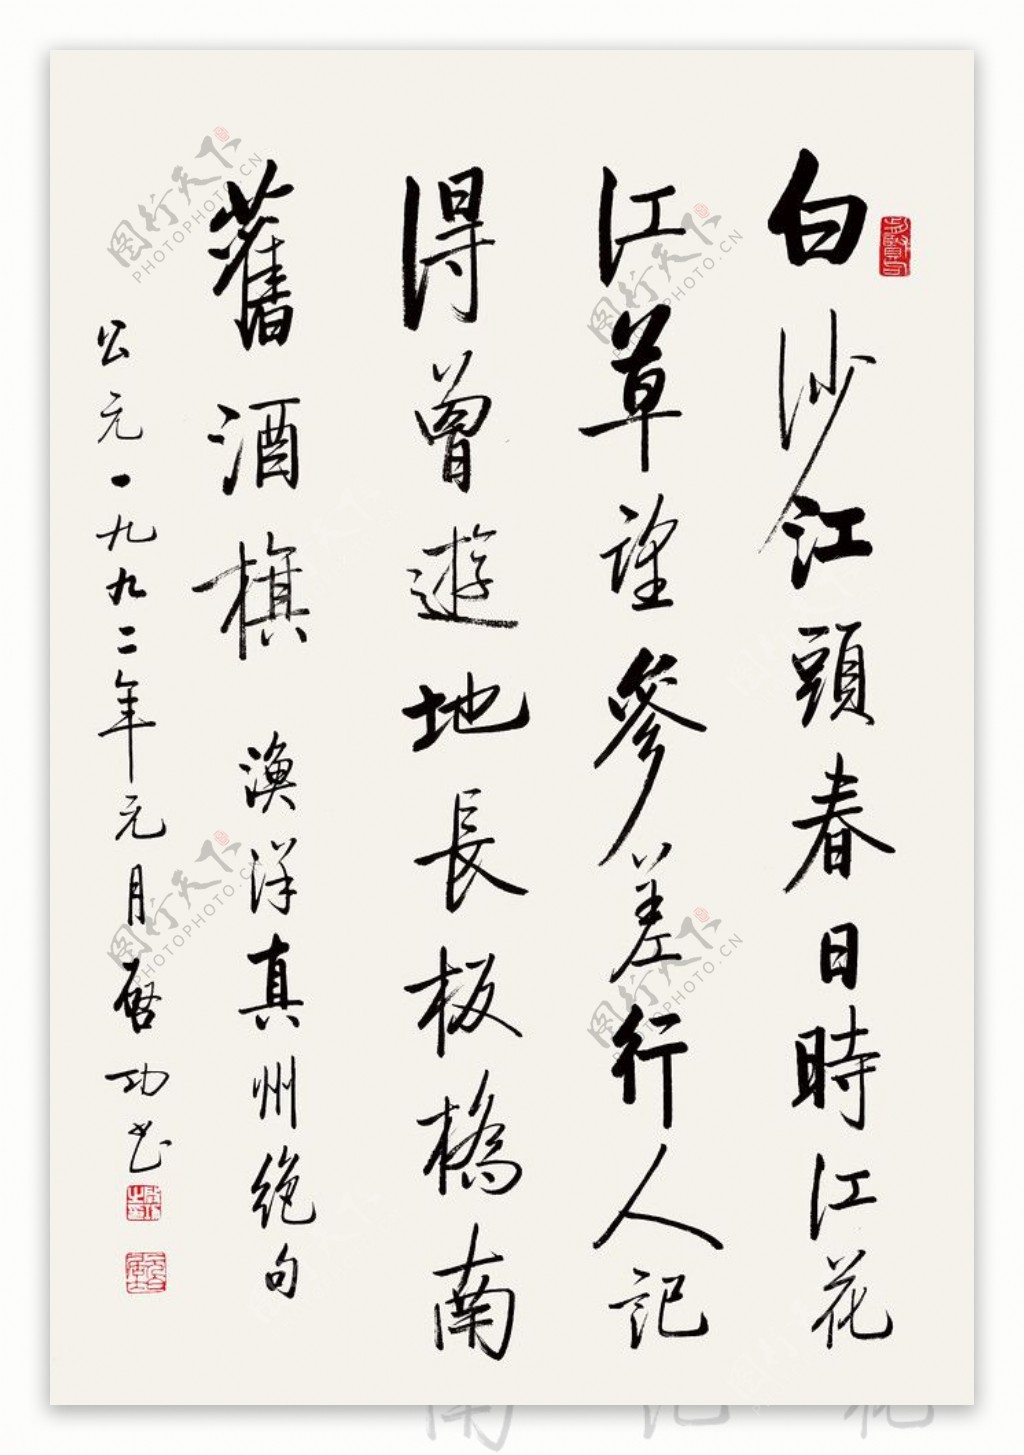 白沙江頭春日時江花
江草望參差行人記
得曾遊地長板橋南
舊酒旗 漁洋真州絕句
公元一九九二年元月啓功书
图行天下
PHOTOPHOTO.CN
图行天下
PHOTOPHOTO.CN
图行天下
PHOTOPHOTO.CN
图行天下
PHOTOPHOTO.CN